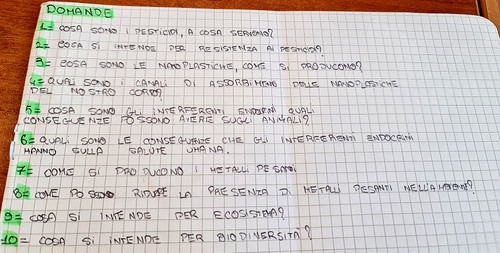 DOMANDE
1= COSA SONO I PESTICIDI, A COSA SERVONO?
2= COSA SI INTENDE PER RESISTENZA AI PESTICIDI?
3= COSA SONO LE NANOPLASTICHE, COME SI PRODUCONO?
4= QUALI SONO I CANALI DI ASSORBIMENTO DELLE NANOPLASTICHE
DEL NOSTRO CORPO?
5= COSA SONO GLI INTERFERENTI ENDOCRINI QUALI
CONSEGUENZE POSSONO AVERE SUGLI ANIMALI?
6= QUALI SONO LE CONSEGUENZE CHE GLI INTERFERENTI ENDOCRINI
HANNO SULLA SALUTE UMANA.
7= COME SI PRODUCONO I METALLI PESANTI
8= COME POSSO RIDURRE LA PRESENZA DI METALLI PESANTI
9= COSA SI INTENDE PER ECOSISTEMA?
10= COSA SI INTENDE PER BIODIVERSITÀ?